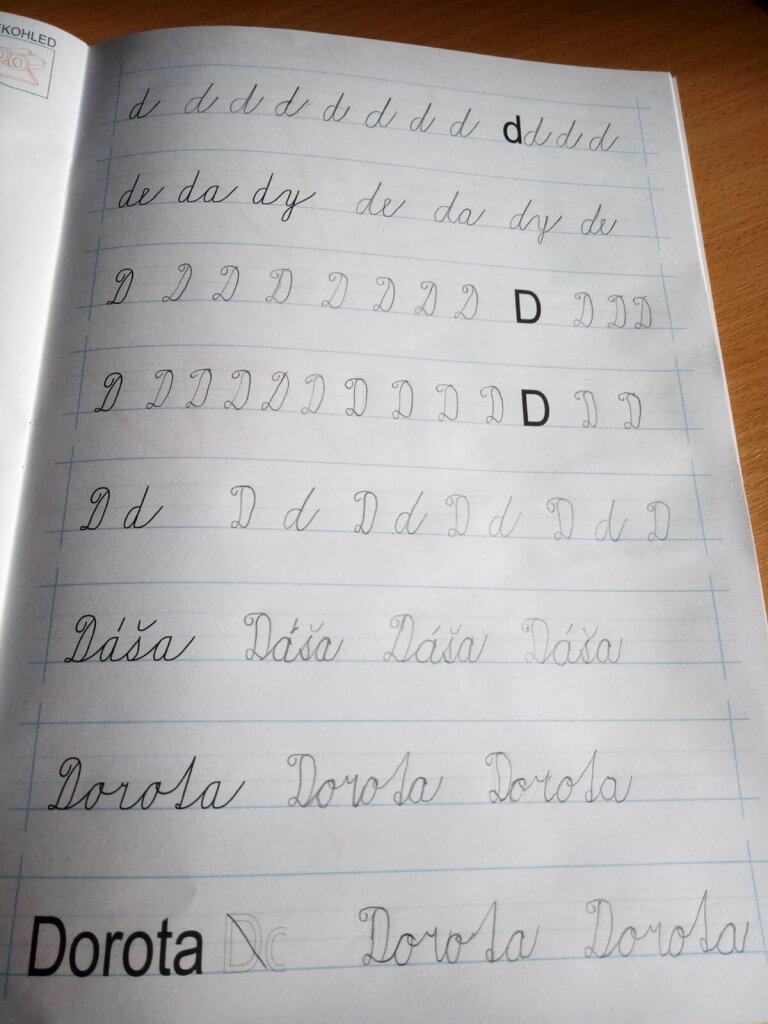 d d d d d d d d d d d d
de da dy de da dy de
D D D D D D D D D D D D
D D D D D D D D D D D D D
D d D d D d D d D d D
Dáša Dáša Dáša Dáša
Dorota Dorota Dorota
Dorota Dorota Dorota